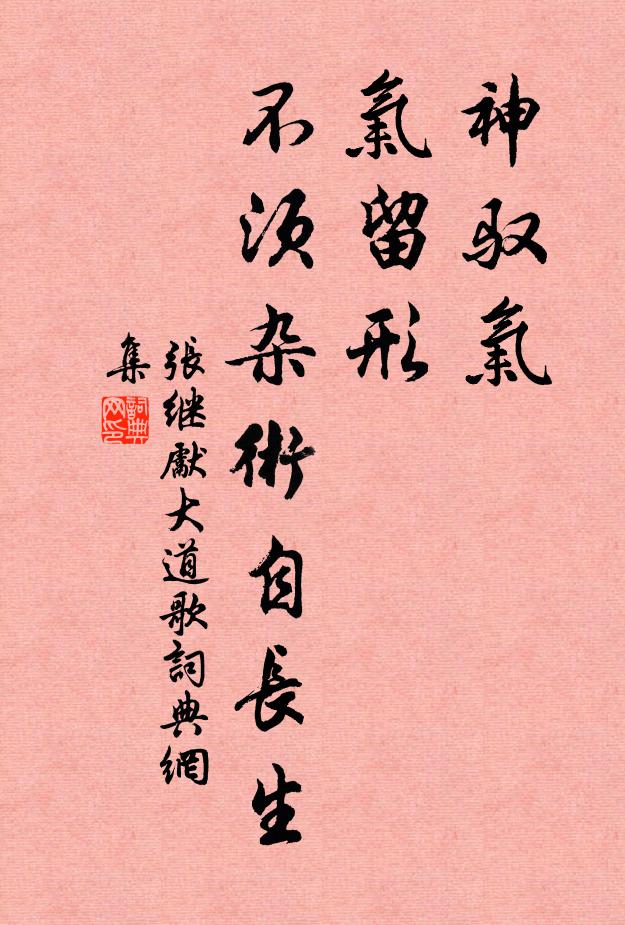 神驭氣
氣留形
不须杂術自長生
張继獻大道歌詞典網
集
詞典
网印